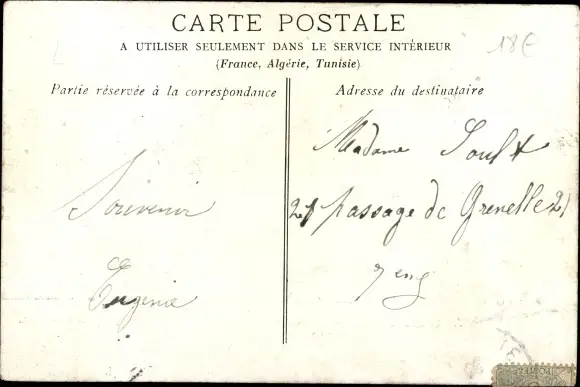 CARTE POSTALE
A UTILISER SEULEMENT DANS LE SERVICE INTÉRIEUR
(France, Algérie, Tunisie)
18€
Partie réservée à la correspondance
Adresse du destinataire
Souvenir
Eugénie
Madame Soult
21 passage de Grenelle 21